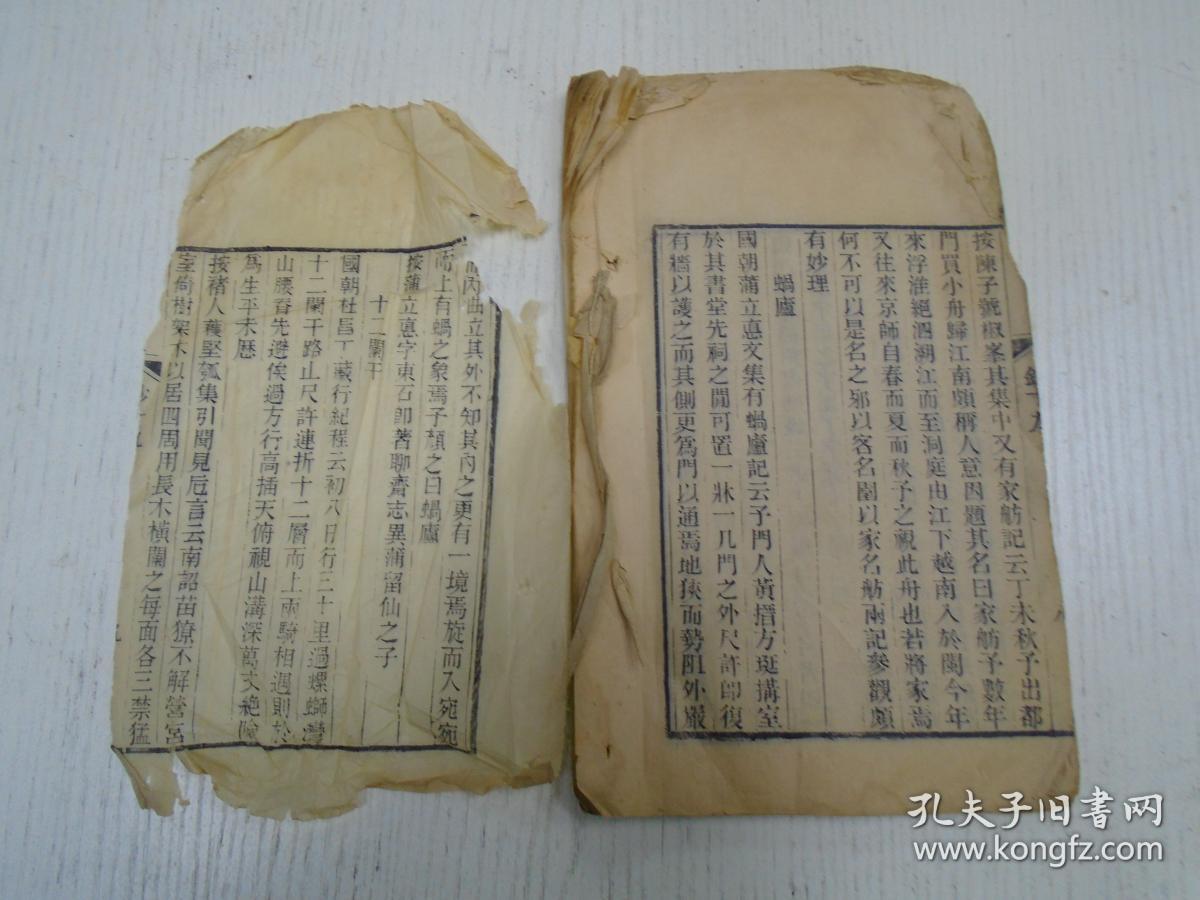 按陳子號椒峯其集中又有家舫記云丁未秋予出都
門買小舟歸江南頗稱人意因題其名曰家舫予數年
來浮淮絕泗溯江而至洞庭由江下越南入於閩今年
又往來京師自春而夏而秋予之視此舟也若將家焉
何不可以是名之邪以客名園以家名舫兩記參觀頗
有妙理
蝸廬
國朝蒲立悳文集有蝸廬記云予門人黃搢方斑搆室
於其書堂先祠之閒可置一牀一几門之外尺許卽復
有牆以護之而其側更爲門以通焉地狹而勢阻外嚴
內曲立其外不知其內之更有一境焉旋而入宛宛
而上有蝸之象焉子顏之曰蝸廬
按蒲立悳字東石卽著聊齋志異蒲留仙之子
十二闌干
國朝杜昌丁藏行紀程云初八日行三十里過螺螄灣
十二闌干路止尺許連折十二層而上兩騎相遇則於
山腰脊先避俟過方行高插天俯視山溝深萬丈絕險
爲生平未歷
按褚人穫堅瓠集引聞見卮言云南詔苗獠不解營宮
室倚樹架木以居四周用長木橫闌之每面各三禁猛
九
孔夫子旧书网
www.kongfz.com